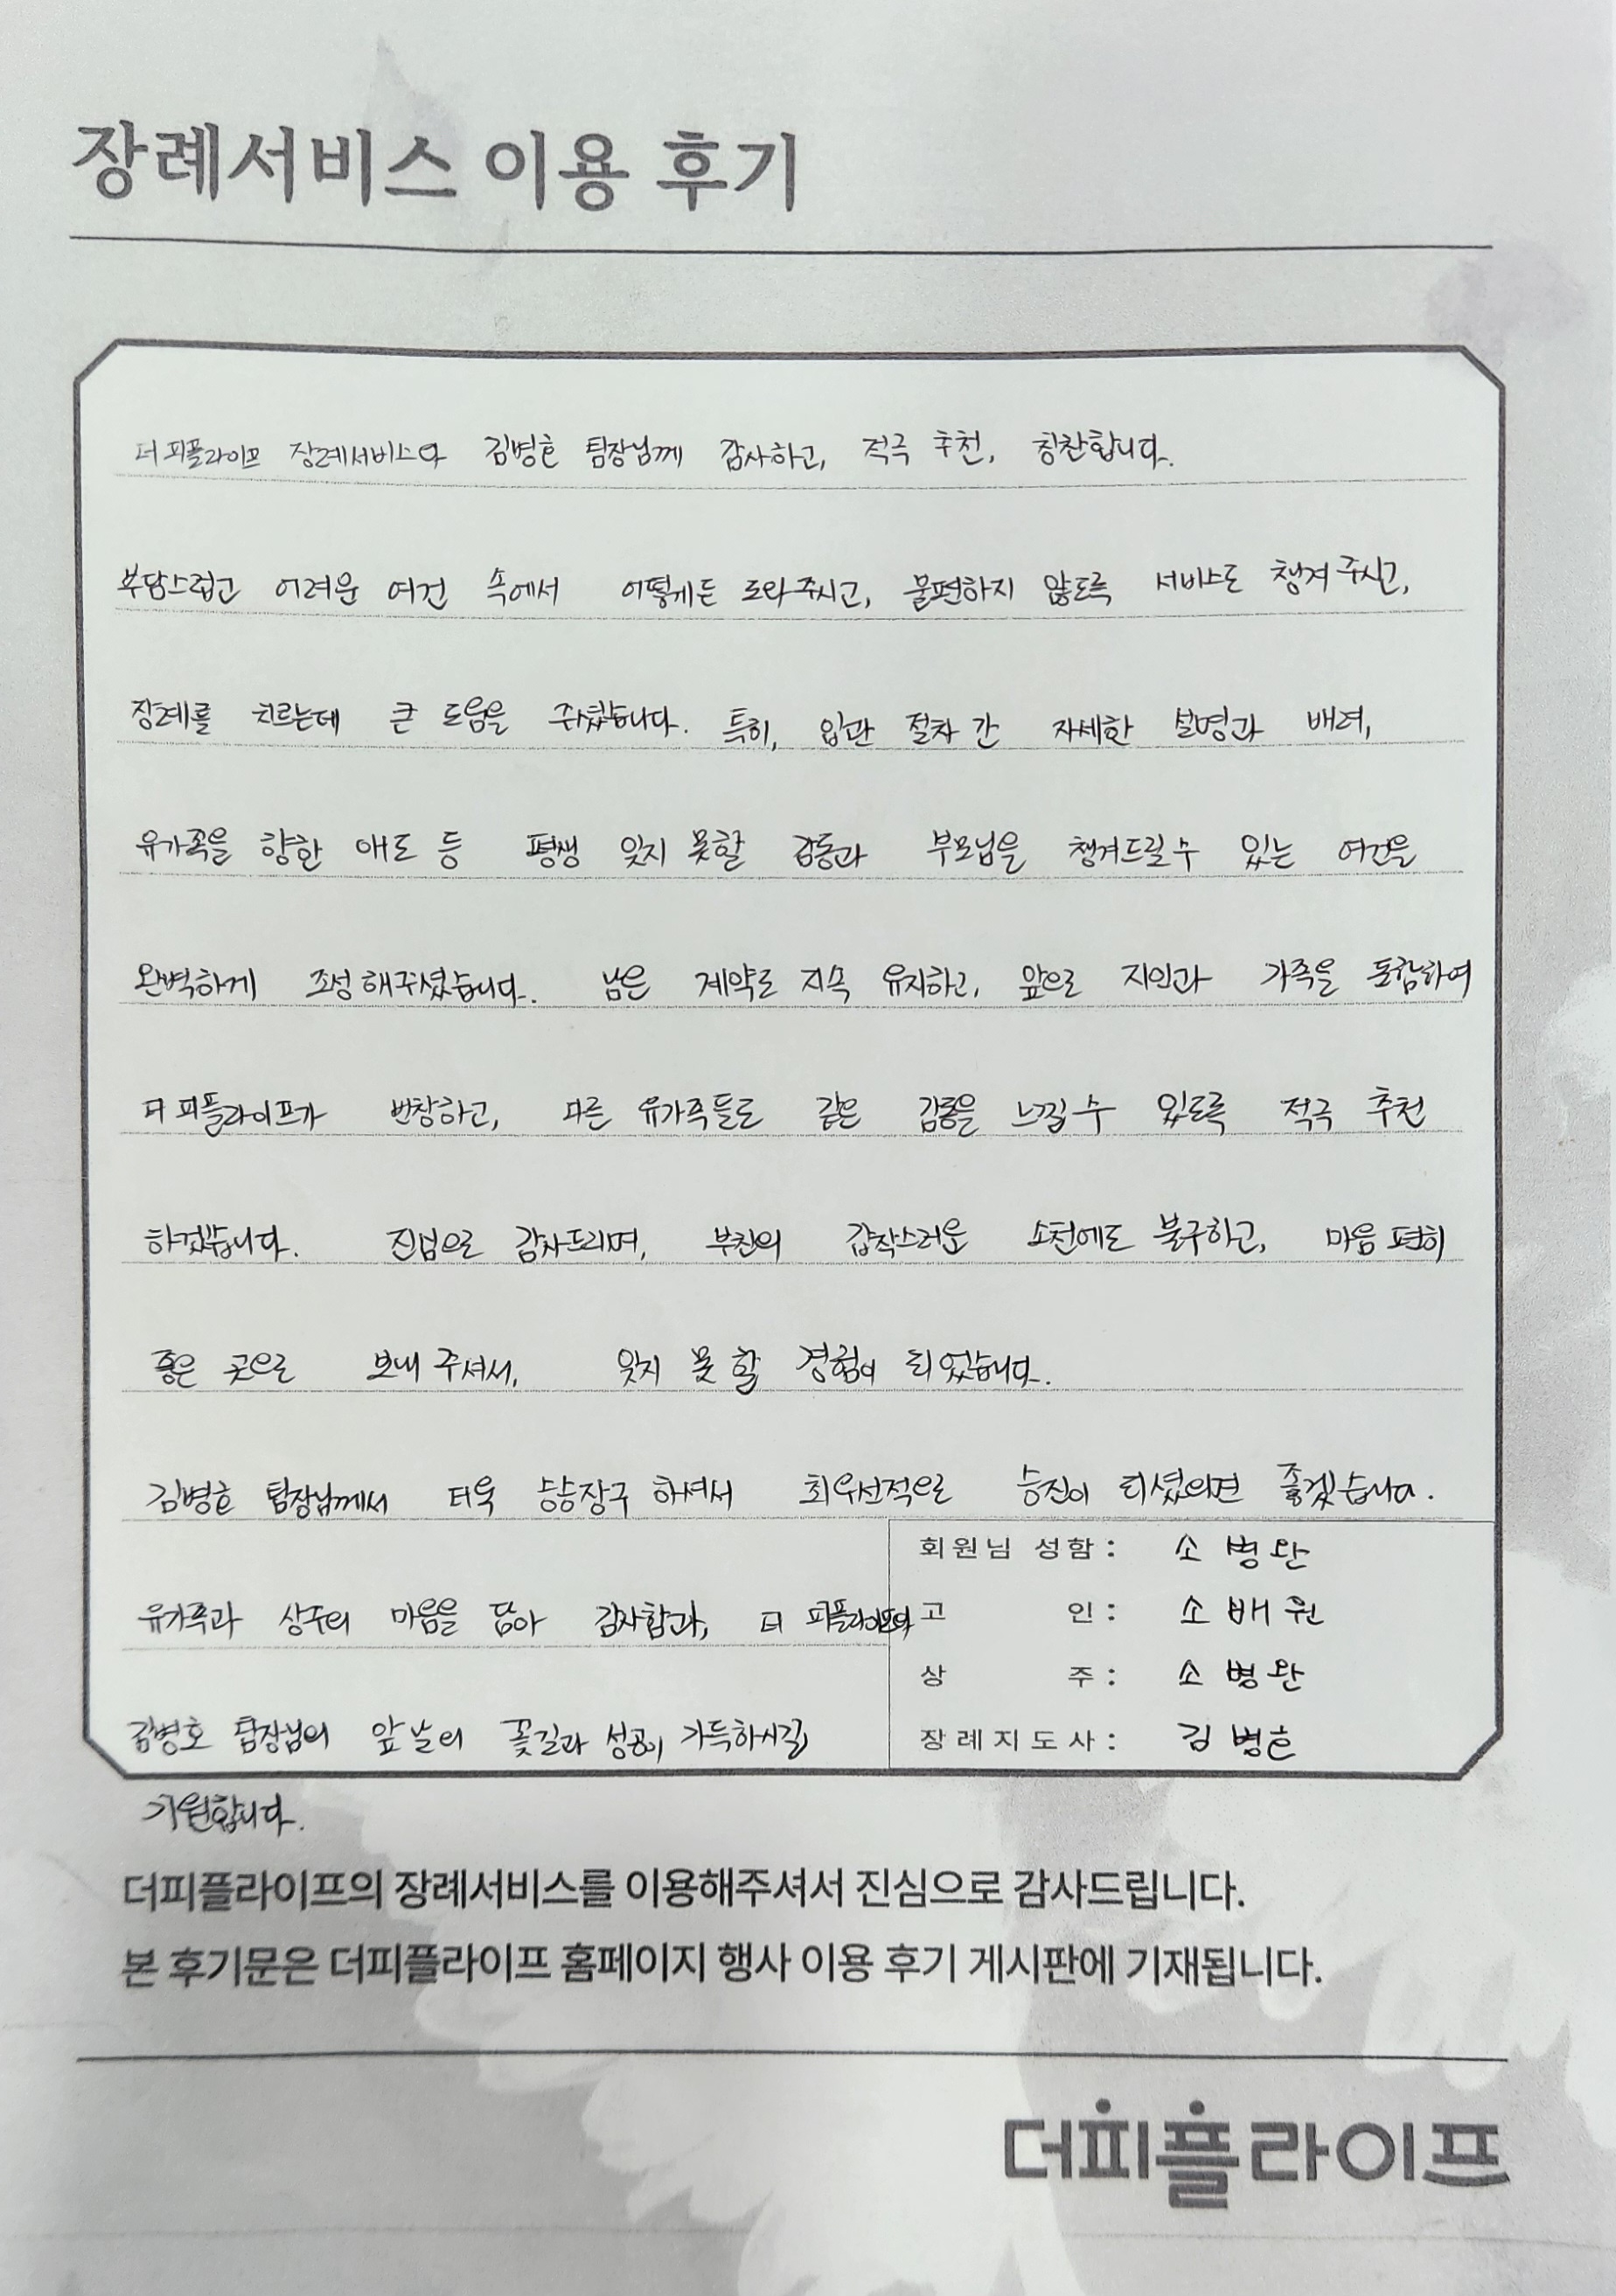 장례서비스 이용 후기
더피플라이프 장례서비스와 김병호 팀장님께 감사하고, 적극 추천, 칭찬합니다.
부담스럽고 어려운 여건 속에서 어떻게든 도와주시고, 불편하지 않도록 서비스도 챙겨주시고,
장례를 치르는데 큰 도움을 주셨습니다. 특히, 입관 절차 간 자세한 설명과 배려,
유가족을 향한 애도 등 평생 잊지 못할 감동과 부모님을 챙겨드릴 수 있는 여건을
완벽하게 조성해주셨습니다. 남은 계약도 지속 유지하고, 앞으로 지인과 가족을 포함하여
더피플라이프가 번창하고, 다른 유가족들도 같은 감동을 느낄 수 있도록 적극 추천
하겠습니다. 진심으로 감사드리며, 부친의 갑작스러운 소천에도 불구하고, 마음 편히
좋은 곳으로 보내 주셔서, 잊지 못 할 경험이 되었습니다.
김병호 팀장님께서 더욱 승승장구 하셔서 최우선적으로 승진이 되셨으면 좋겠습니다.
유가족과 상주의 마음을 담아 감사함과, 더 피플라이프와
김병호 팀장님의 앞날의 꽃길과 성공이 가득하시길
기원합니다.
회원님 성함: 소병완
고 인: 소배원
상 주: 소병완
장례지도사: 김병호
더피플라이프의 장례서비스를 이용해주셔서 진심으로 감사드립니다.
본 후기문은 더피플라이프 홈페이지 행사 이용 후기 게시판에 기재됩니다.
더피플라이프